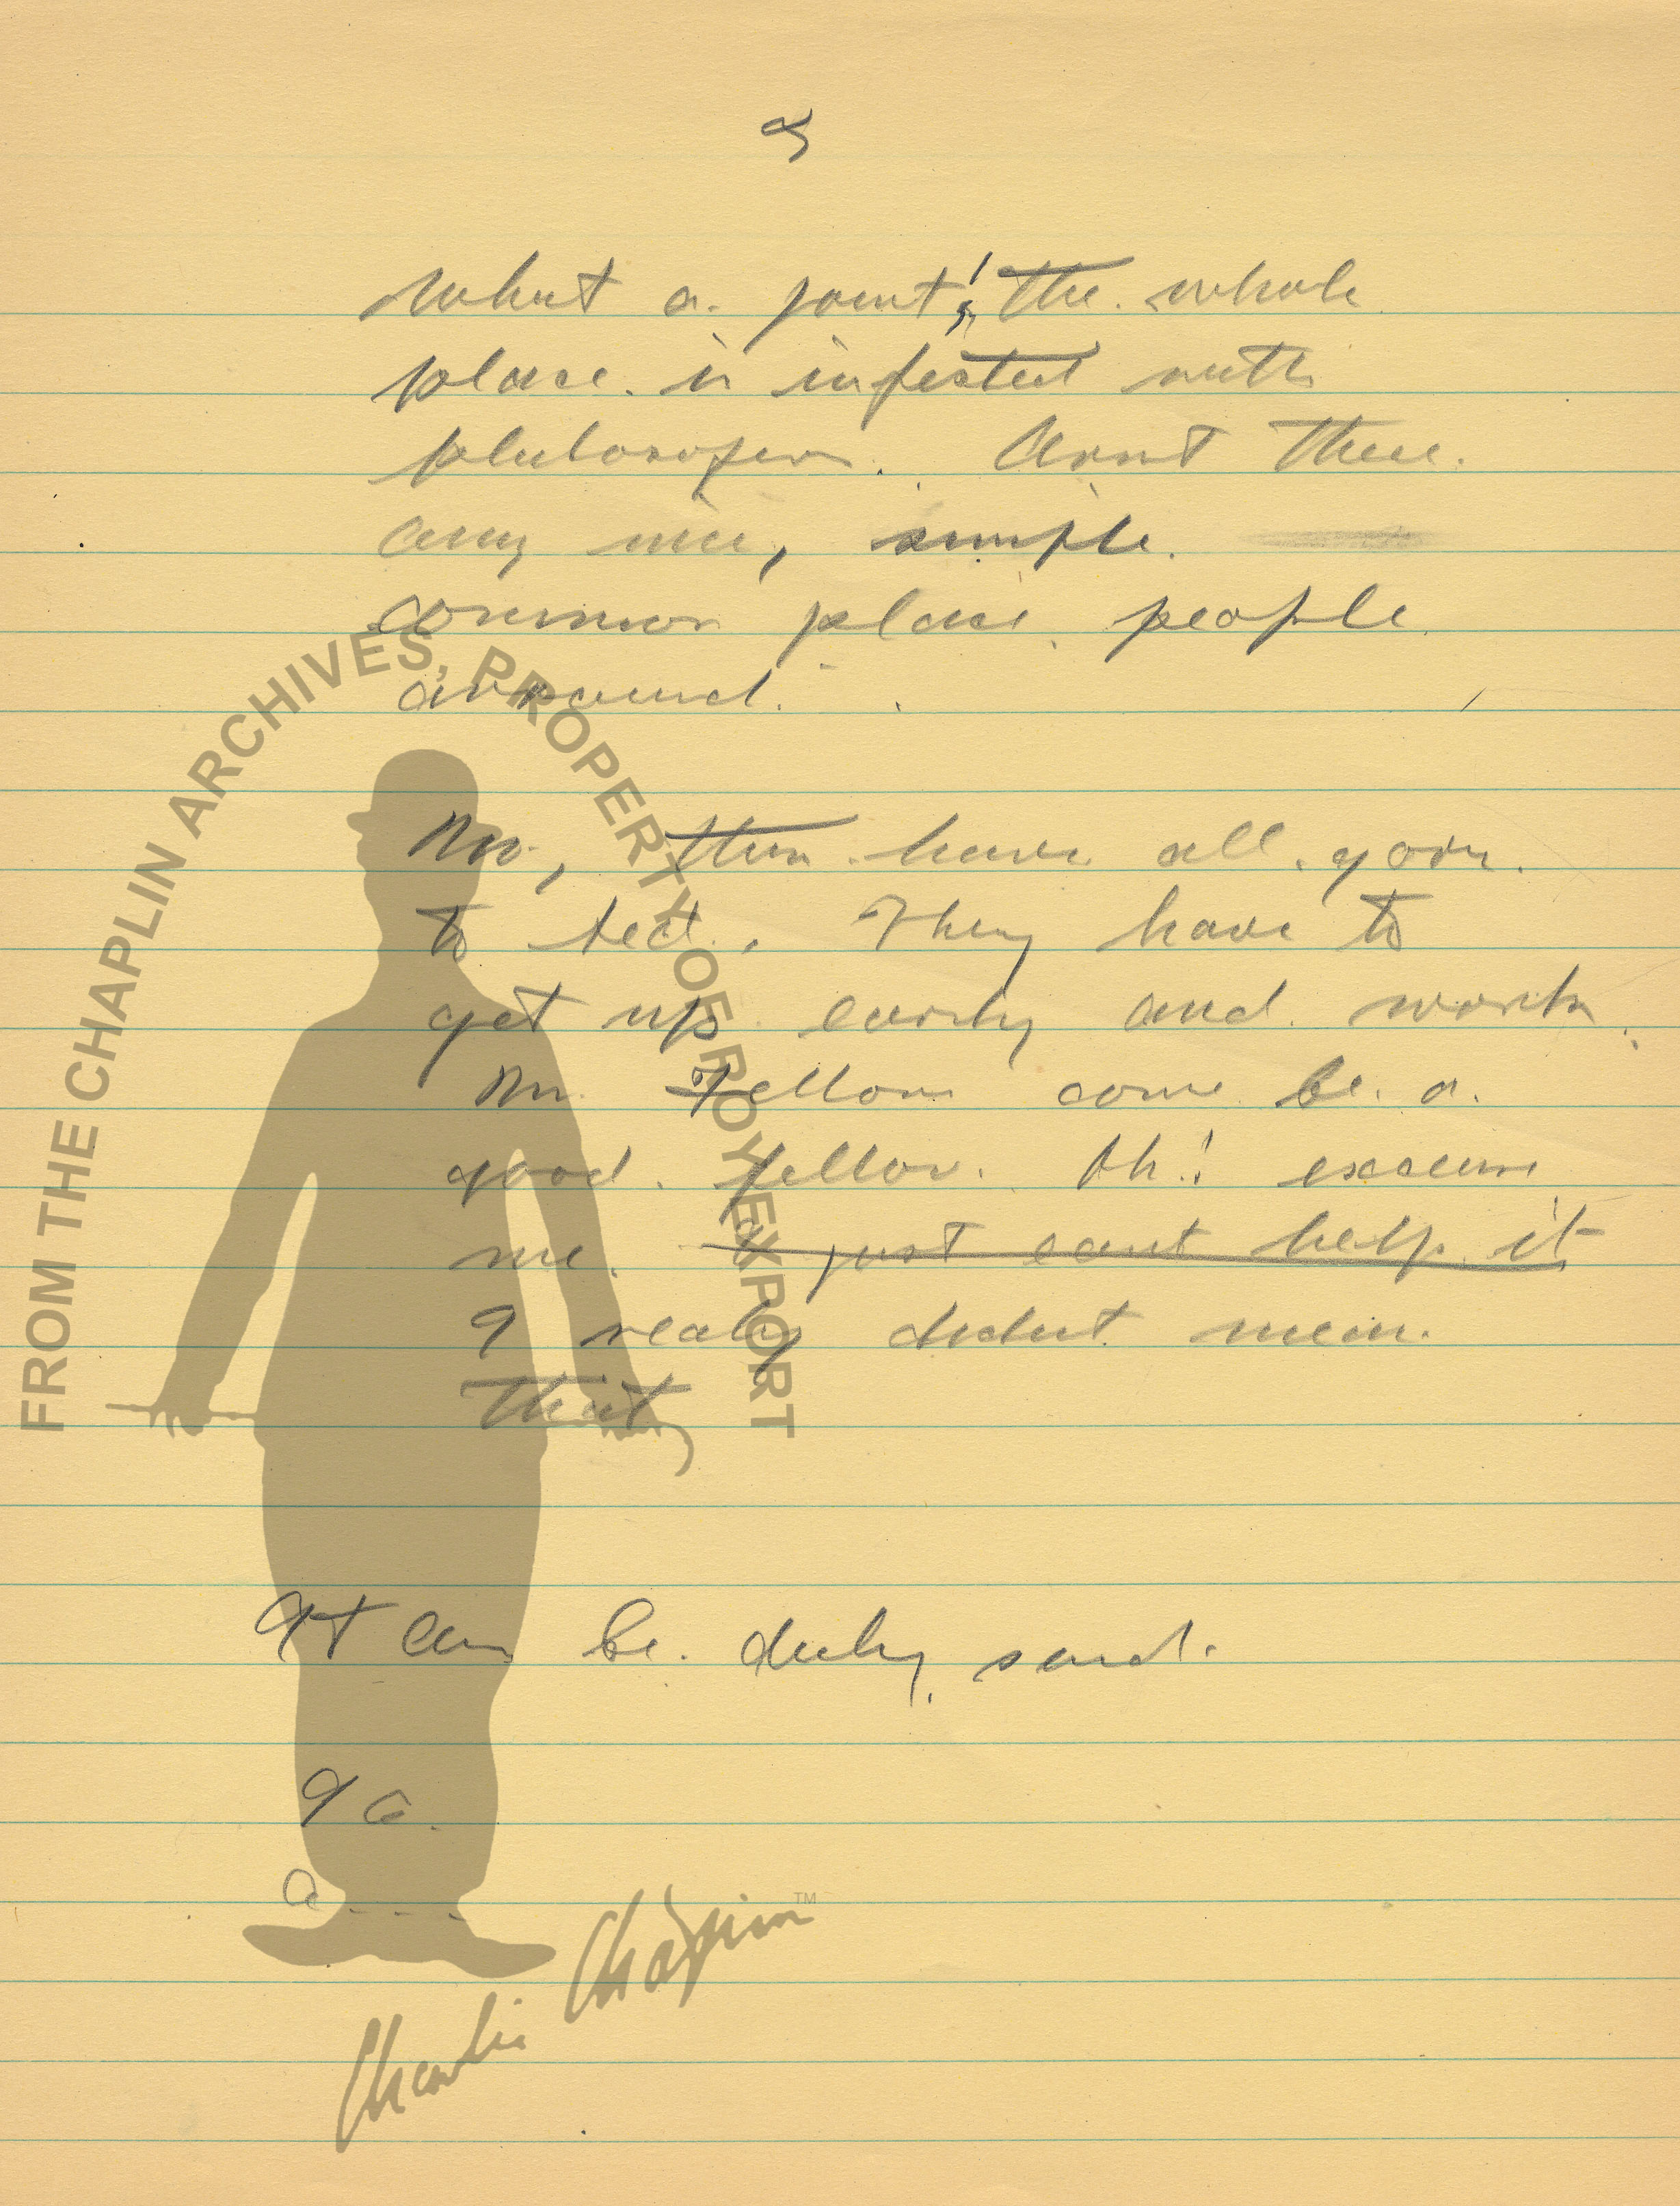 What a joint! The whole
place is infested with
philosofers. Arnt there
any nice, simple
common place people
around.
No, they have all gone
to bed. They have to
get up early and work.
Mr Fellow come be a
good fellow. Oh! excuse
me. I just cant help it
I realy didnt mean
that,
It can be duly said.
FROM THE CHAPLIN ARCHIVES, PROPERTY OF ROY EXPORT
Charlie Chaplin™